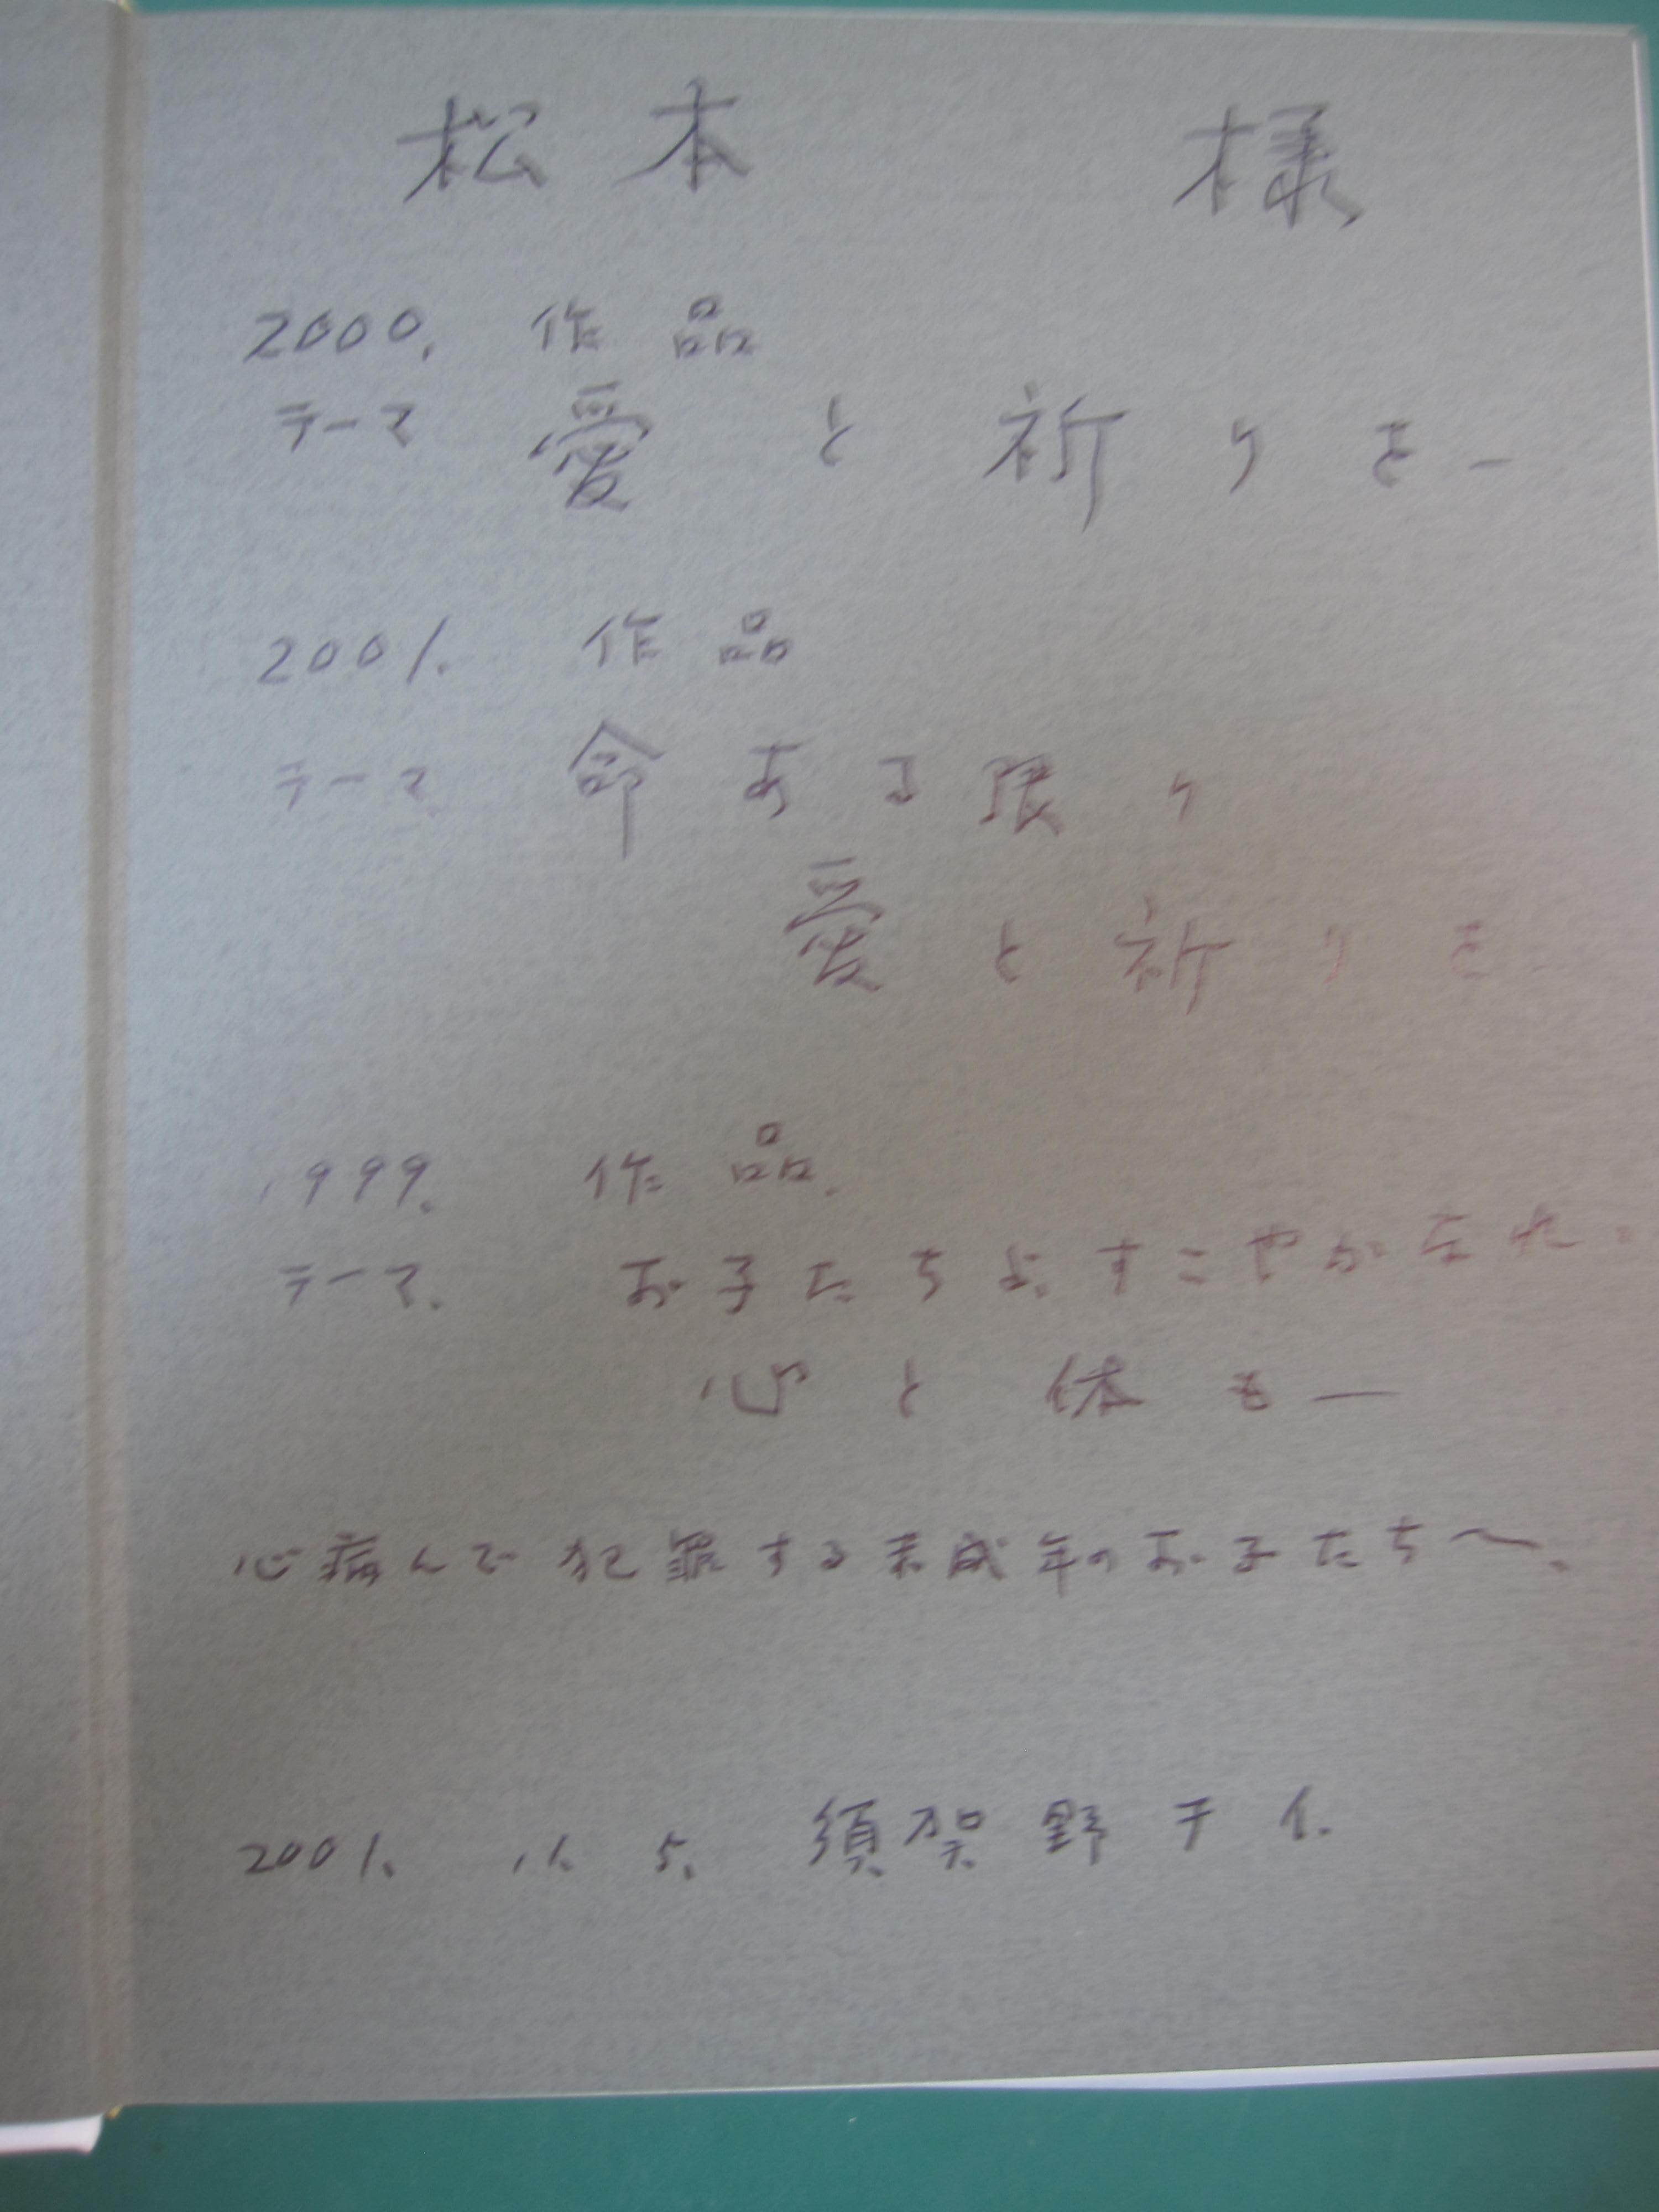 松本 様
2000. 作品
テーマ 愛と祈りを-
2001. 作品
テーマ 命ある限り
愛と祈りを-
1999. 作品.
テーマ. お子たちよ、すこやかなれ
心と体も—
心病んで犯罪する未成年のお子たちへ、
2001. 11. 5. 須賀野